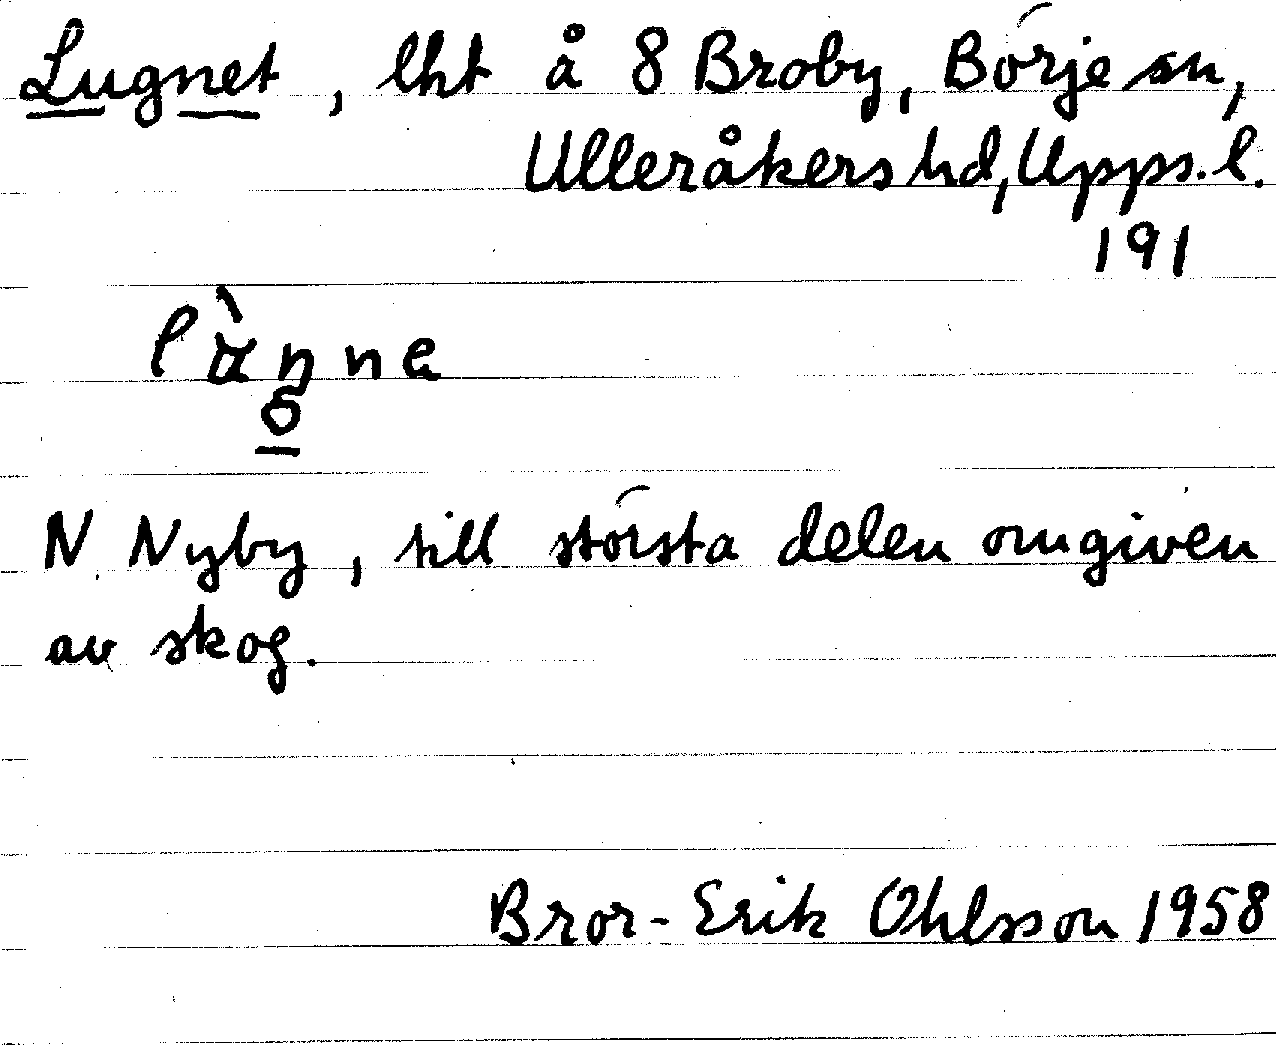 Lugnet, lht å 8 Broby, Börje sn,
Ulleråkers hd, Upps. l.
191
N Nyby, till största delen omgiven
av skog.
Bror-Erik Ohlsson 1958